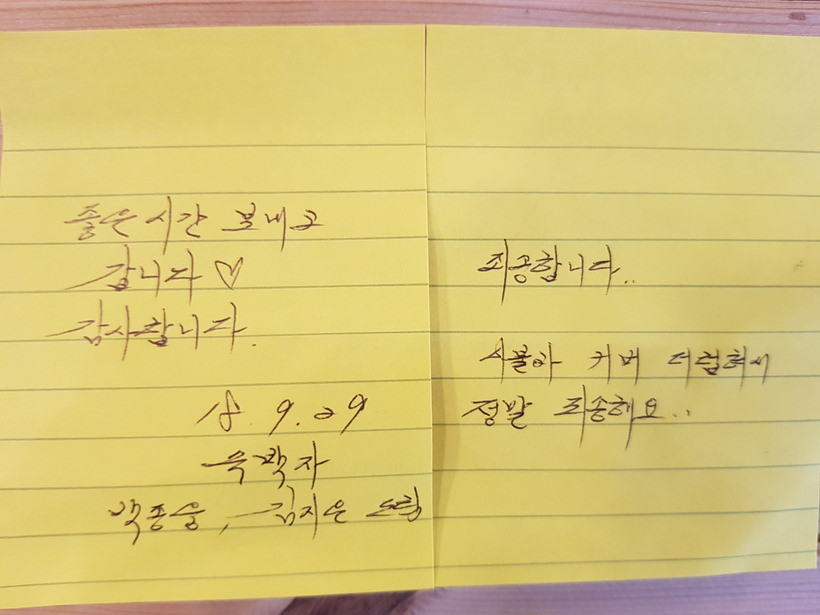 좋은시간 보내고
갑니다 ♡
감사합니다.
18. 9. 29
숙박자
김지은 드림
죄송합니다..
커버 더럽혀서
정말 죄송해요..